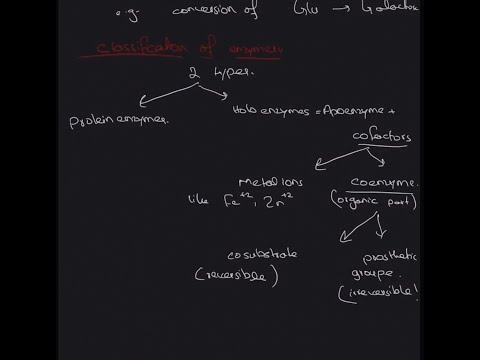 e.g. conversion of Glu → Galactose
Classification of enzymes
2 types.
Protein enzymes.
Holo enzymes = Apoenzyme +
cofactors
Metal ions
like Fe+2, Zn+2
coenzyme.
(organic part)
cosubstrate
(reversible)
prosthetic
groups.
(irreversible!